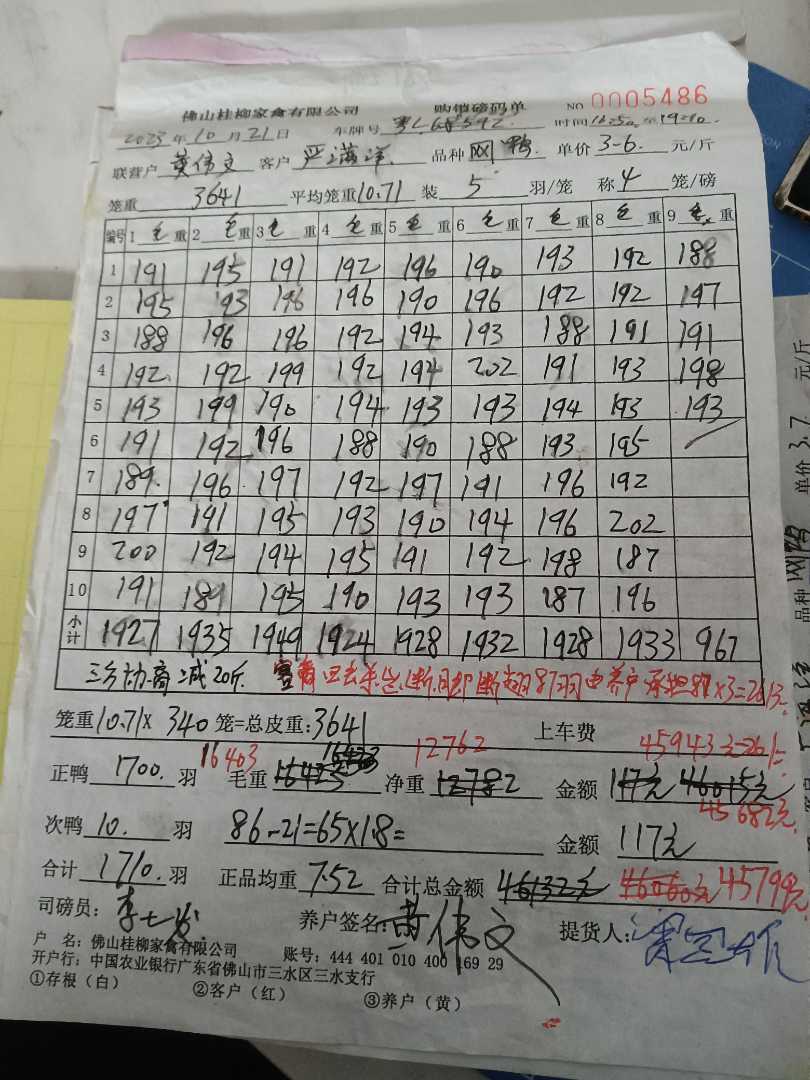 佛山桂柳家禽有限公司 购销磅码单 NO 0005486
2023年10月21日 车牌号 粤L68592 时间
联营户 黄伟文 客户 严满洋 品种 网鸭 单价 3-6. 元/斤
笼重 3641 平均笼重10.71 装 5 羽/笼 称 4 笼/磅
编号 1 毛重 2 毛重 3 毛重 4 毛重 5 毛重 6 毛重 7 毛重 8 毛重 9 毛重
1 191 195 191 192 196 190 193 192 188
2 195 193 196 196 190 196 192 192 197
3 188 196 196 192 194 193 188 191 191
4 192 192 199 192 194 202 191 193 198
5 193 199 190 194 193 193 194 193 193
6 191 192 196 188 190 188 193 195
7 189 196 197 192 197 191 196 192
8 197 191 195 193 190 194 196 202
9 200 192 194 195 191 192 198 187
10 191 189 195 190 193 193 187 196
小计 1927 1935 1949 1924 1928 1932 1928 1933 967
三方协商减20斤. 回去杀定断 断翅87羽由养户承担 87×3=261元
笼重10.71× 340 笼=总皮重:3641 上车费
16403 12762 45943元-261=
正鸭 1700. 羽 毛重 16423 净重 12782 金额 117元 46015元
45682元
次鸭 10. 羽 86-21=65×1.8= 金额 117元
合计 1710. 羽 正品均重 7.52 合计总金额 46132元 46060元 45799元
司磅员: 养户签名: 黄伟文 提货人:
户 名: 佛山桂柳家禽有限公司 账号: 444 401 010 400 169 29
开户行: 中国农业银行广东省佛山市三水区三水支行
①存根（白） ②客户（红） ③养户（黄）
元/斤
单价 3.7
品种 网鸭